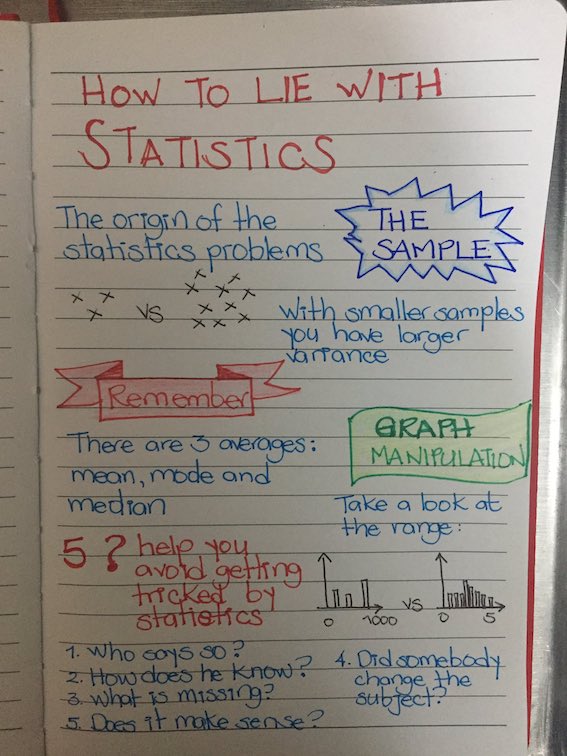 HOW TO LIE WITH
STATISTICS
The origin of the
statistics problems
THE
SAMPLE
VS
With smaller samples
you have larger
variance
Remember
There are 3 averages:
mean, mode and
median
GRAPH
MANIPULATION
Take a look at
the range:
0 1000
VS
0 5
5 ? help you
avoid getting
tricked by
statistics
1. Who says so?
2. How does he know?
3. What is missing?
4. Did somebody
change the
subject?
5. Does it make sense?